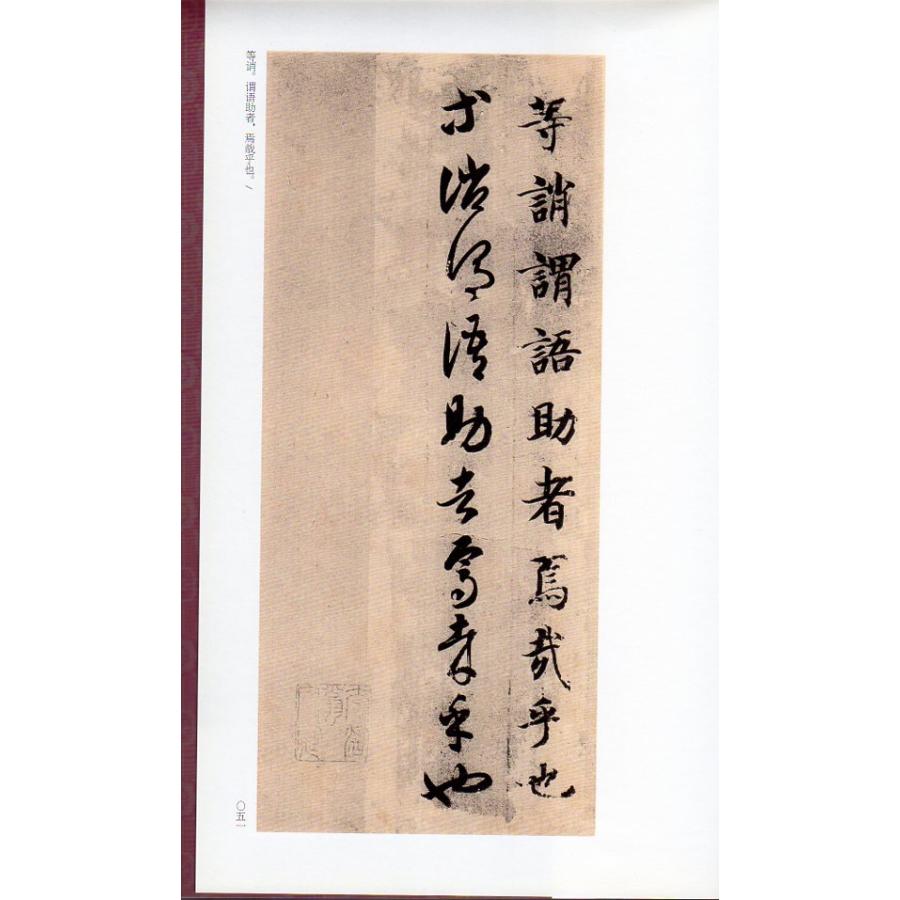 等誚謂語助者焉哉乎也
等誚謂語助者焉哉乎也
等诮。谓语助者，焉哉乎也。/
〇五一